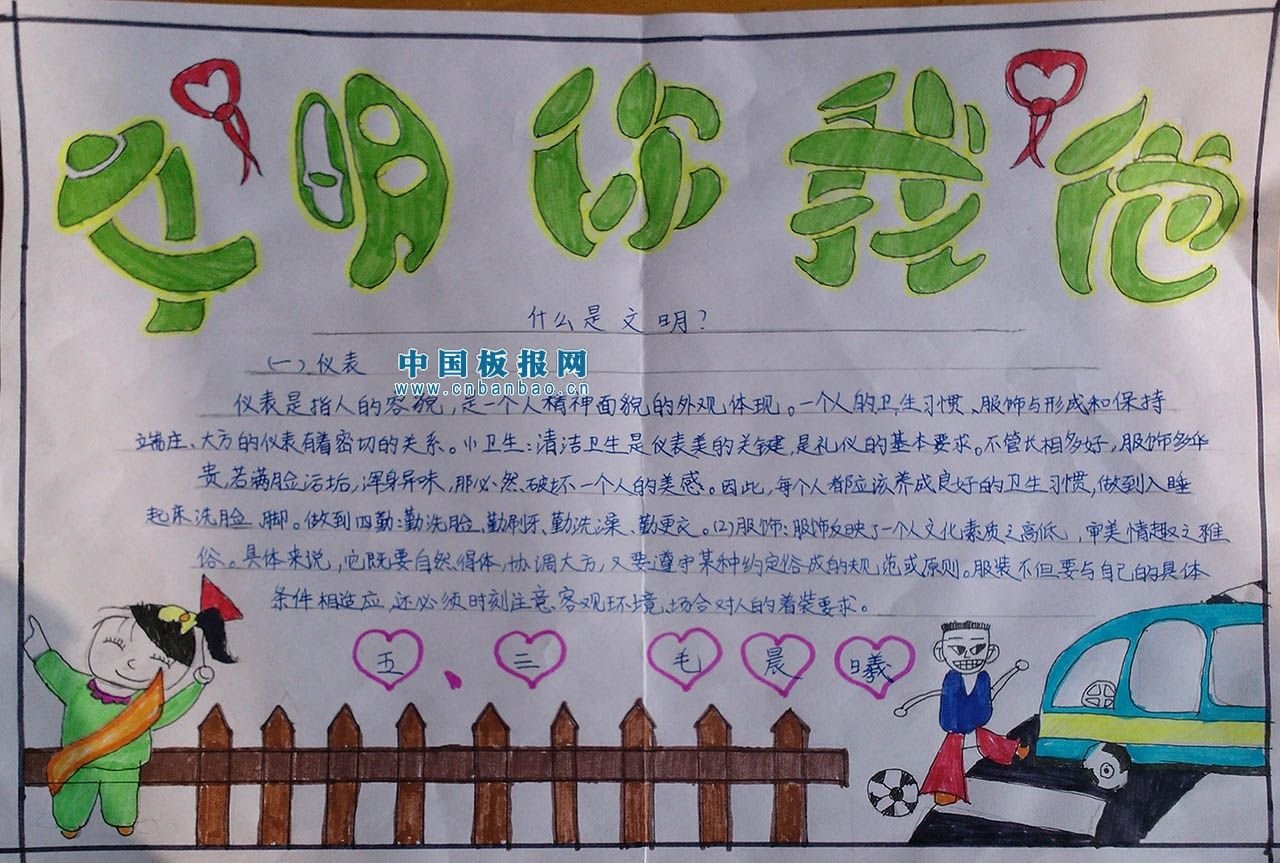 文明你我他
什么是文明?
(一)仪表
中国板报网
www.cnbanbao.cn
仪表是指人的容貌,是一个人精神面貌的外观体现。一个人的卫生习惯、服饰与形成和保持
端庄、大方的仪表有着密切的关系。小卫生:清洁卫生是仪表美的关键,是礼仪的基本要求。不管长相多好,服饰多华
贵,若满脸污垢,浑身异味,那必然破坏一个人的美感。因此,每个人都应该养成良好的卫生习惯,做到入睡
起床洗脸、脚。做到四勤:勤洗脸、勤刷牙、勤洗澡、勤更衣。(2)服饰:服饰反映了一个人文化素质之高低,审美情趣之雅
俗。具体来说,它既要自然得体,协调大方,又要遵守某种约定俗成的规范或原则。服装不但要与自己的具体
条件相适应,还必须时刻注意客观环境、场合对人的着装要求。
五、三 毛晨曦